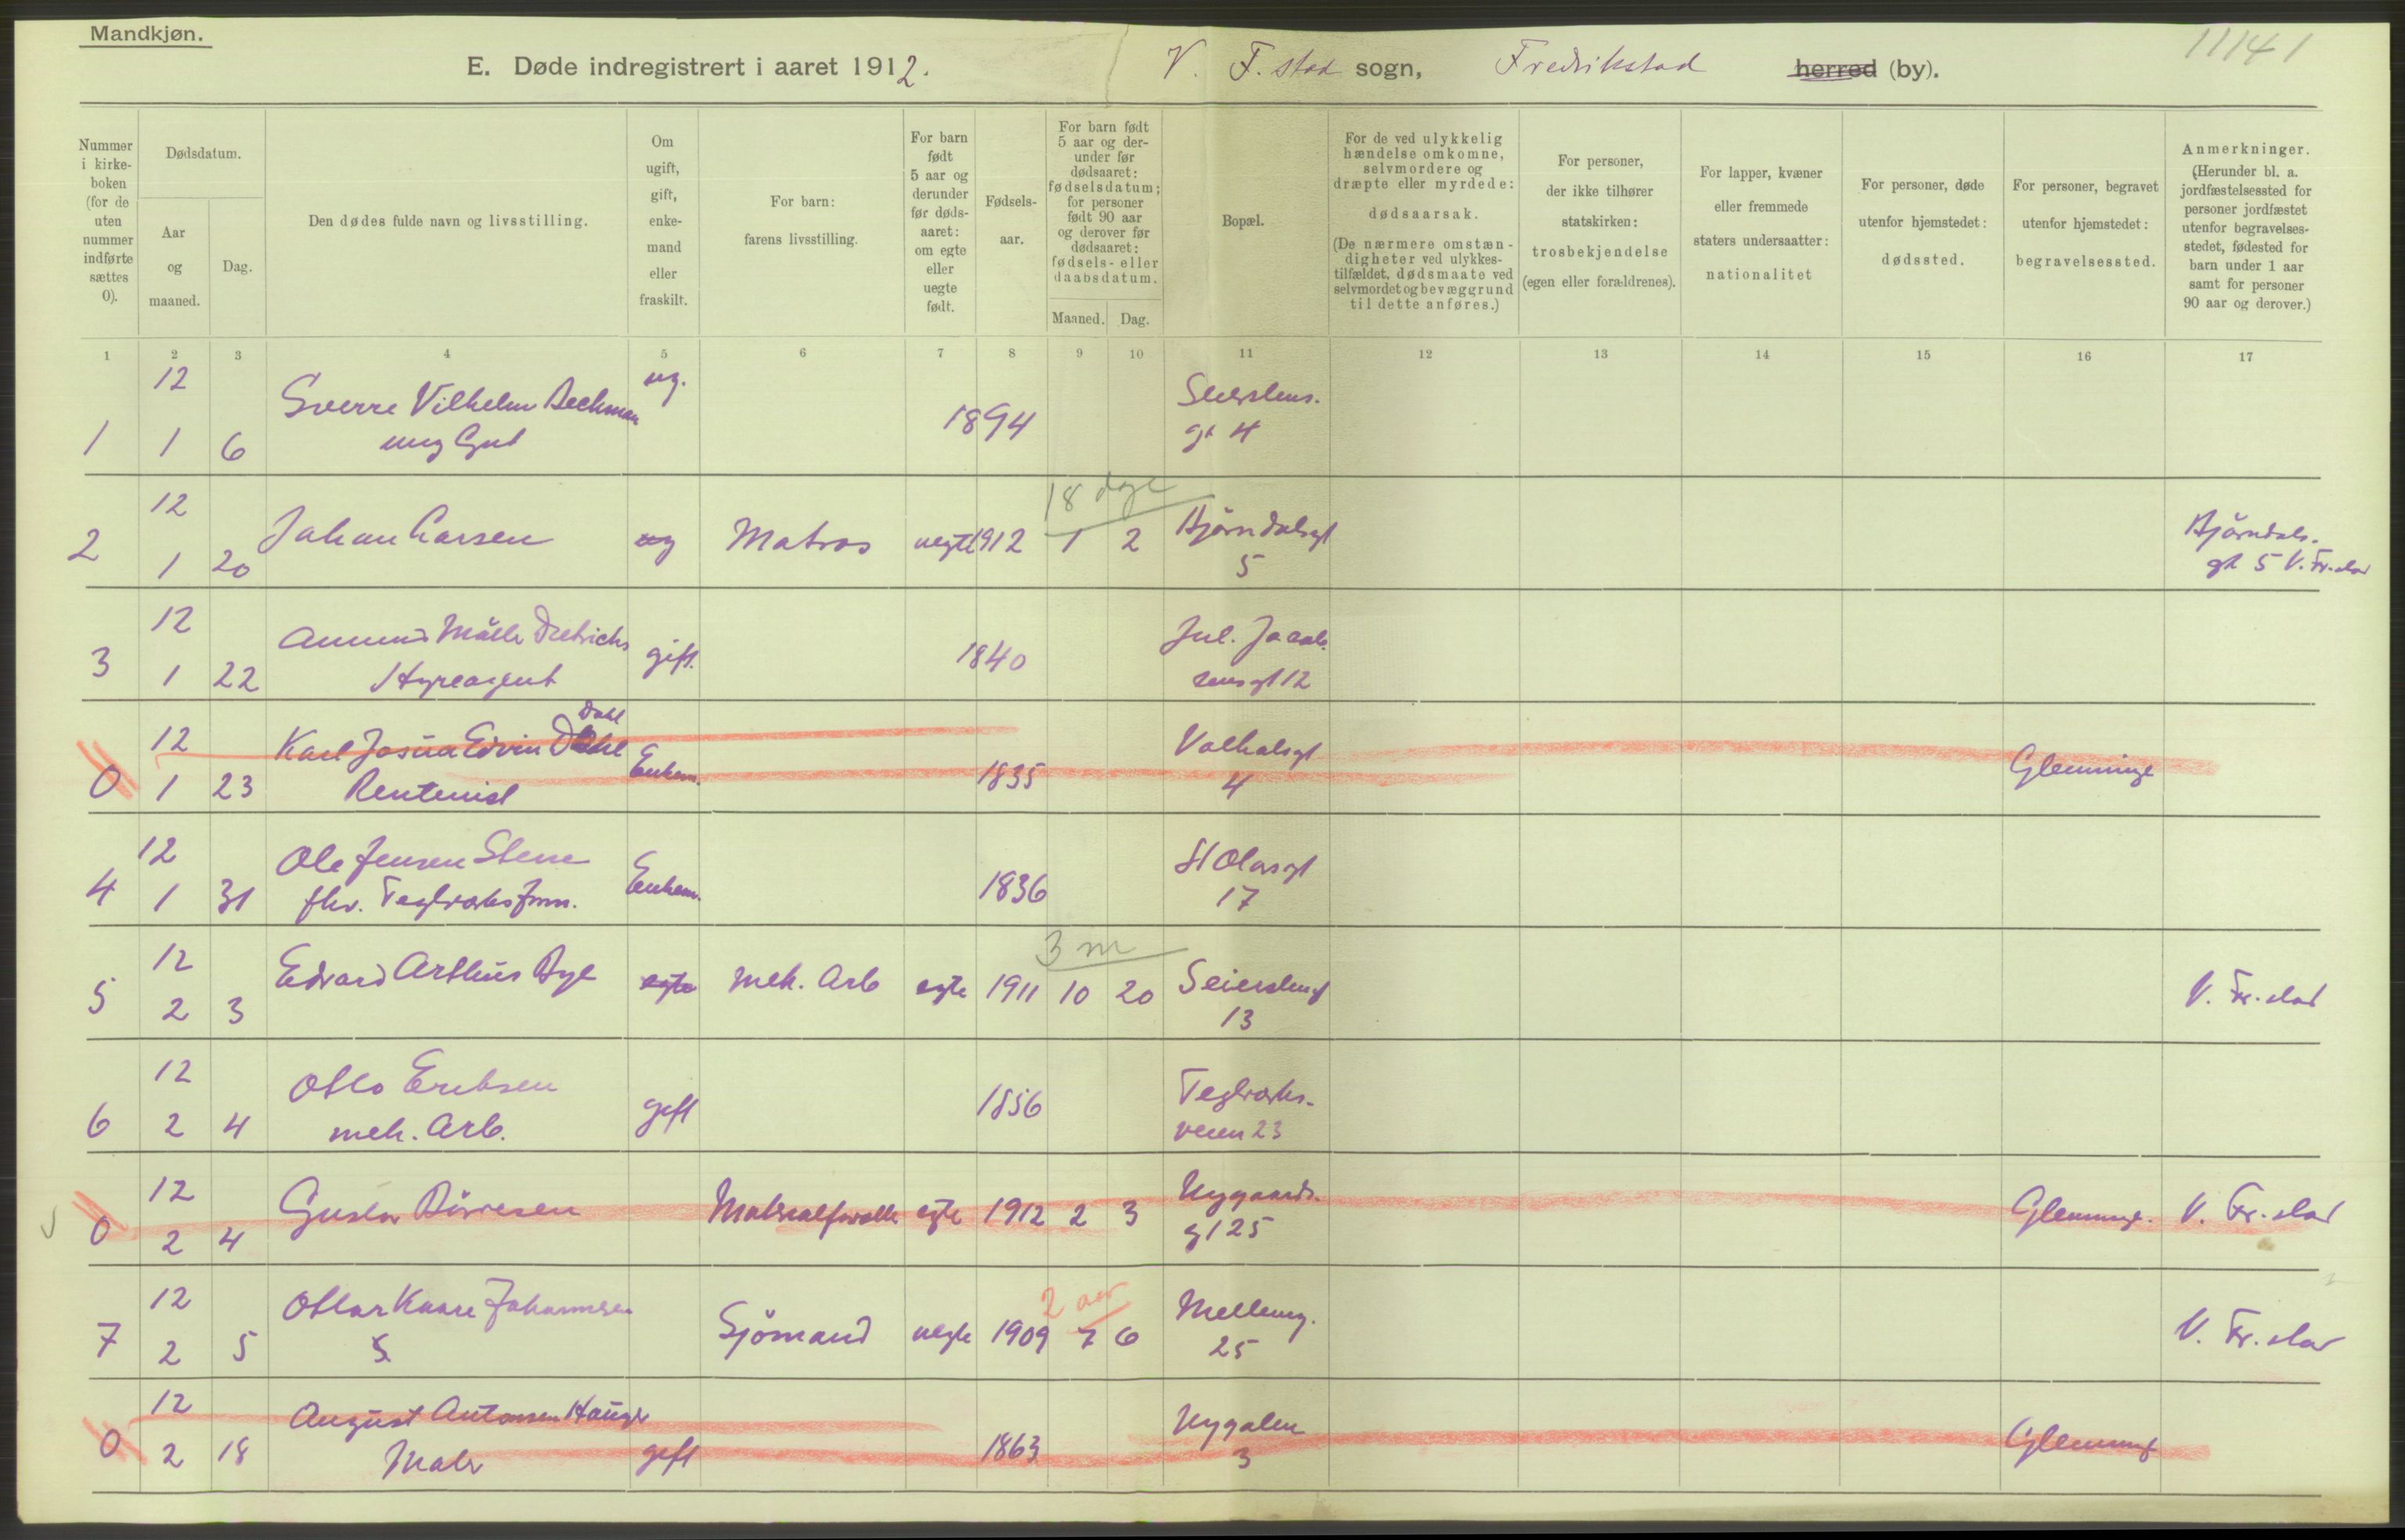 Mandkjøn.
11141
E. Døde indregistrert i aaret 1912. V. F.stad sogn, Fredrikstad herred (by).
Nummer i kirke- boken (for de uten nummer indførte sættes 0).
Dødsdatum.
Aar og maaned.
Dag.
Den dødes fulde navn og livsstilling.
Om ugift, gift, enke- mand eller fraskilt.
For barn: farens livsstilling.
For barn født 5 aar og derunder før døds- aaret: om egte eller uegte født.
Fødsels- aar.
For barn født 5 aar og der- under før dødsaaret: fødselsdatum; for personer født 90 aar og derover før dødsaaret: fødsels- eller daabsdatum.
Maaned. Dag.
Bopæl.
For de ved ulykkelig hændelse omkomne, selvmordere og dræpte eller myrdede: dødsaarsak. (De nærmere omstæn- digheter ved ulykkes- tilfældet, dødsmaate ved selvmordet og bevæggrund til dette anføres.)
For personer, der ikke tilhører statskirken: trosbekjendelse (egen eller forældrenes).
For lapper, kvæner eller fremmede staters undersaatter: nationalitet
For personer, døde utenfor hjemstedet: dødssted.
For personer, begravet utenfor hjemstedet: begravelsessted.
Anmerkninger. (Herunder bl. a. jordfæstelsessted for personer jordfæstet utenfor begravelses- stedet, fødested for barn under 1 aar samt for personer 90 aar og derover.)
1 2 3 4 5 6 7 8 9 10 11 12 13 14 15 16 17
12 Sverre Vilhelm Beckman ug.
1 1 6 ung Gut 1894 gt 4
18 dage
12
2 1 20 Johan Larsen ug Matros uegte 1912 1 2 Bjørndalsgt 5 Bjørndals- gt 5 V. Fr.stad
12 Amund Møller Dietrichs Jul. Jacob-
3 1 22 Hyreagent gift. 1840 sensgt 12
Dahl
12 Karl Josua Edvin Dahl Valhalsgt
0 1 23 Rentenist Enkem. 1835 4 Glemminge
12 Ole Jensen Stene St Olavsgt
4 1 31 fhv. Teglverksfmn. Enkem. 1836 17
3 m
12 Edvard Arthur Bye
5 2 3 egte Mek. Arb egte 1911 10 20 Seierstensgt 13 V. Fr.stad
12 Otto Eriksen Teglverks-
6 2 4 mek. Arb. gift 1856 veien 23
12 Gustav Børresen
0 2 4 egte 1912 2 3 Nygaards- gt 25 Glemminge. V. Fr.stad
2 aar
12 Ottar Kaare Johannesen
7 2 5 S. Sjømand uegte 1909 7 6 25 V. Fr.stad
12 August Antonsen Hauge
0 2 18 Maler gift 1863 Nygaten 3 Glemminge